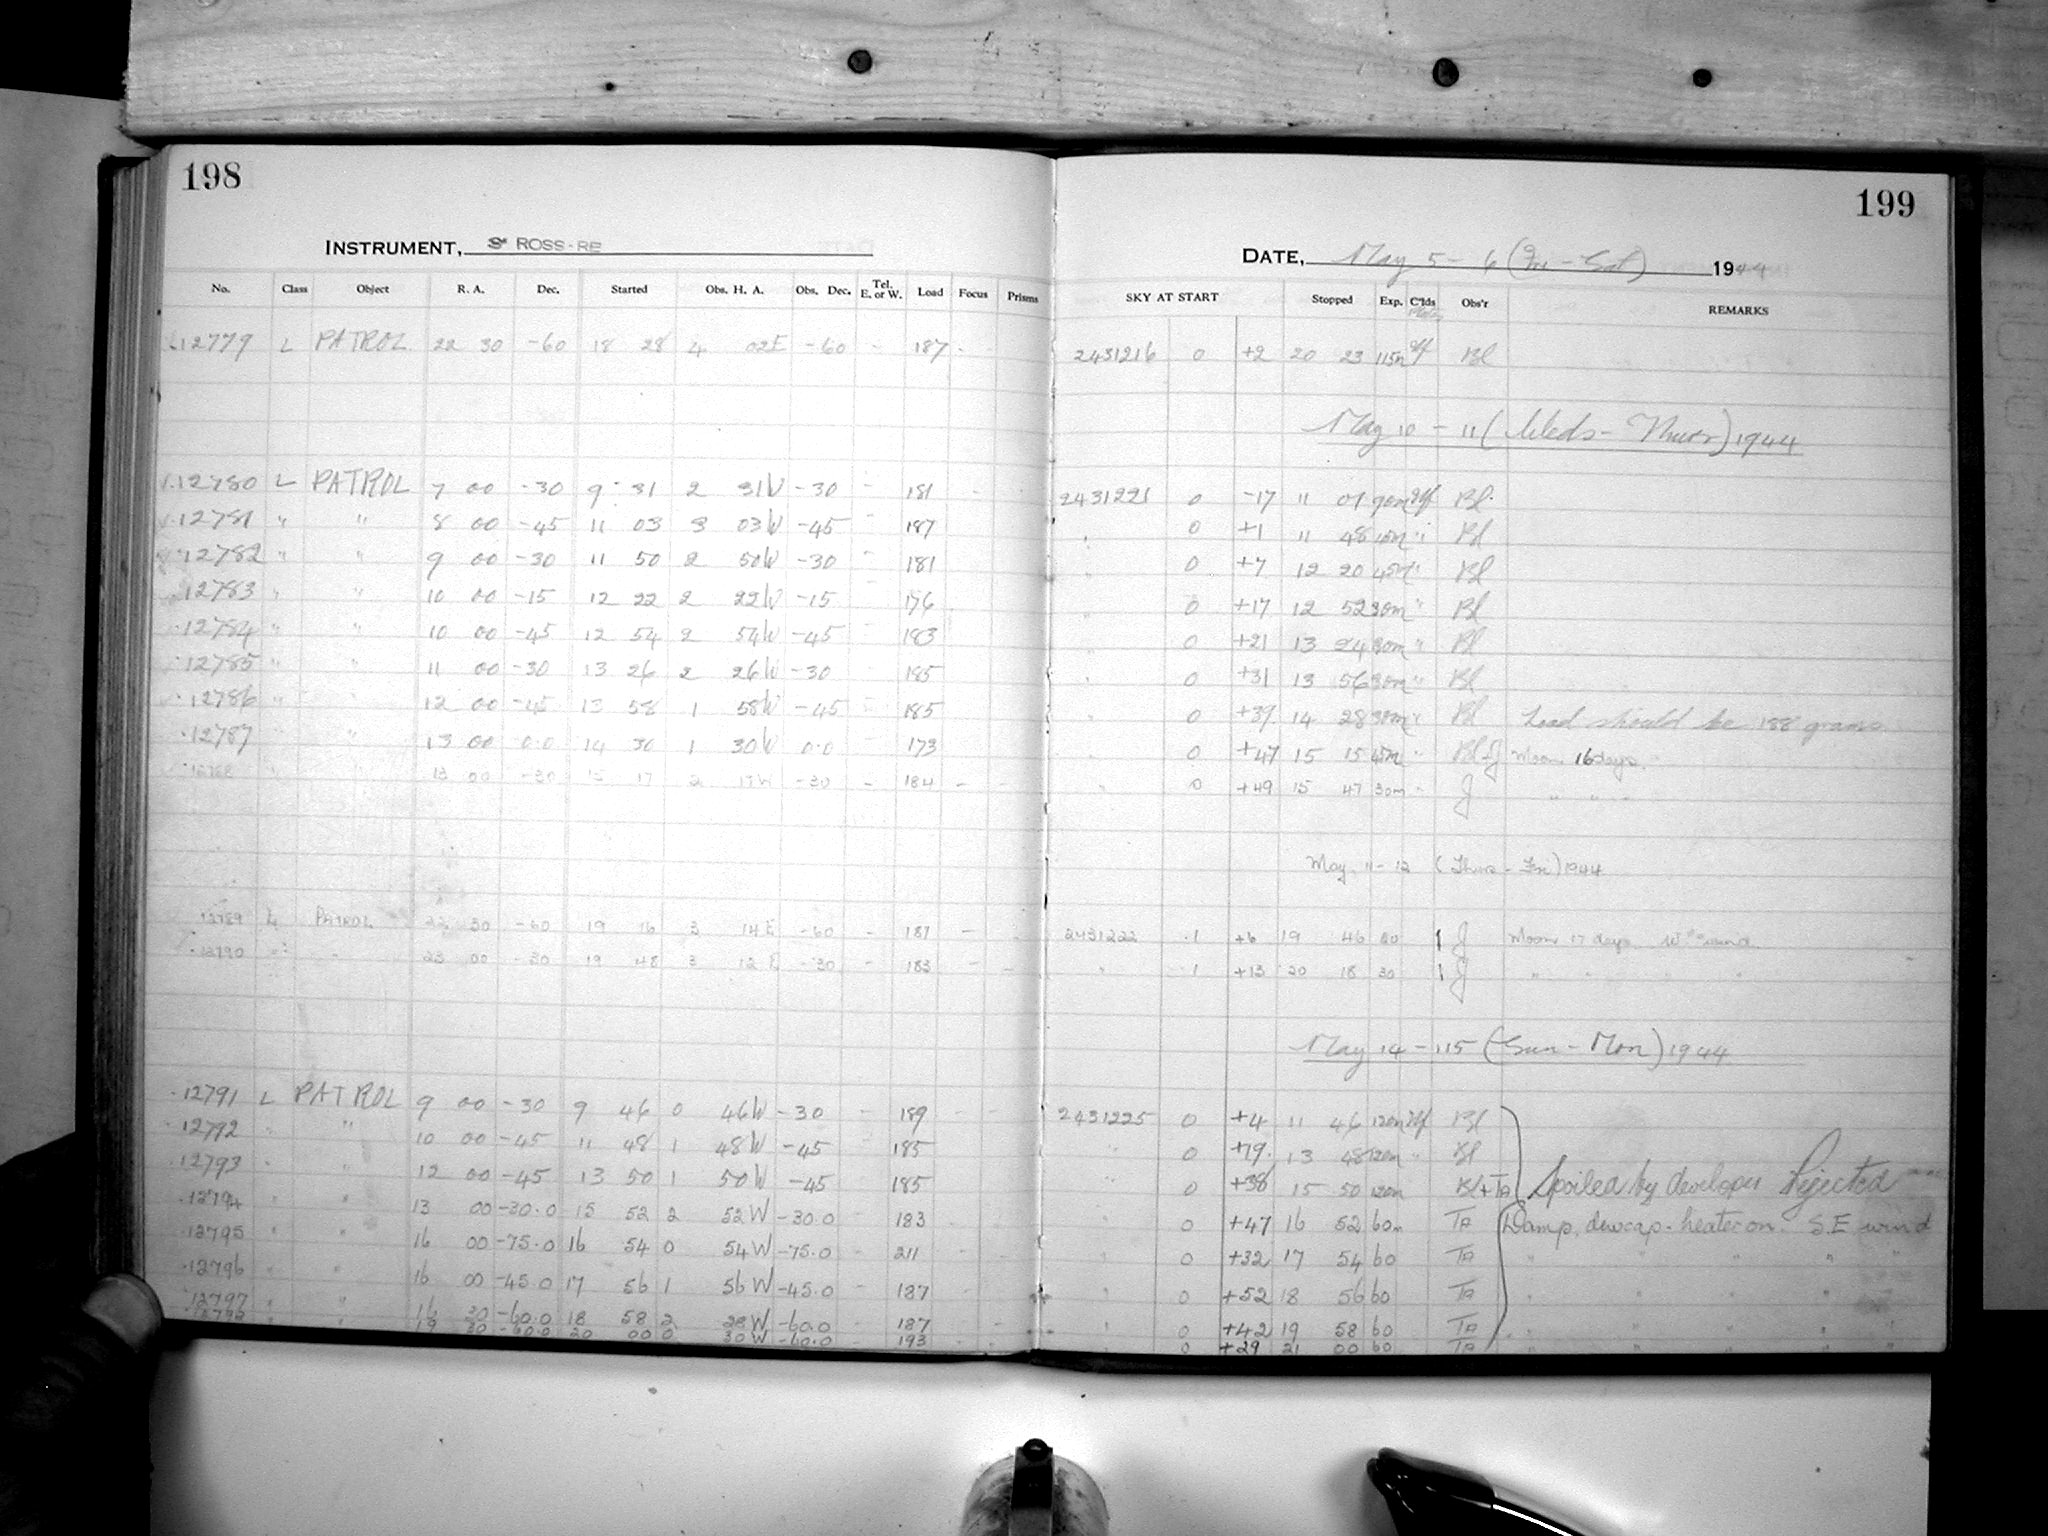 198
INSTRUMENT, 3" ROSS-RE
No. Class Object R. A. Dec. Started Obs. H. A. Obs. Dec. Tel. E. or W. Load Focus Prisms
12779 L PATROL 22 30 -60 18 28 4 02E -60 - 187 -
12780 L PATROL 7 00 -30 9 31 2 31W -30 - 181 -
12781 " " 8 00 -45 11 03 3 03W -45 - 187
12782 " " 9 00 -30 11 50 2 50W -30 - 181
12783 " " 10 00 -15 12 22 2 22W -15 - 176
12784 " " 10 00 -45 12 54 2 54W -45 - 183
12785 " " 11 00 -30 13 26 2 26W -30 185
12786 " " 12 00 -45 13 58 1 58W -45 185
12787 " " 13 00 0.0 14 30 1 30W 0.0 173
12788 " " 13 00 -30 15 17 2 17W -30 - 184 -
12789 L PATROL 22 30 -60 19 16 3 14E -60 - 187 -
12790 " " 23 00 -30 19 48 3 12E -30 - 183 - -
12791 L PATROL 9 00 -30 9 46 0 46W -30 - 189 - -
12792 " " 10 00 -45 11 48 1 48W -45 185
12793 " " 12 00 -45 13 50 1 50W -45 185
12794 " " 13 00 -30.0 15 52 2 52W -30.0 183
12795 " " 16 00 -75.0 16 54 0 54W -75.0 - 211 - -
12796 " " 16 00 -45.0 17 56 1 56W -45.0 - 187 -
12797 " " 16 30 -60.0 18 58 2 28W -60.0 187 -
12798 19 30 -60.0 20 00 0 30W -60.0 193
199
DATE, May 5-6 (Fri-Sat) 1944
SKY AT START Stopped Exp. C'lds Obs'r REMARKS
2431216 0 +2 20 23 115m Bl
May 10-11 (Weds-Thurs) 1944
2431221 0 -17 11 01 90m Bl
" 0 +1 11 48 45m " Bl
" 0 +7 12 20 Bl
" 0 +17 12 52 30m " Bl
" 0 +21 13 24 30m " Bl
" 0 +31 13 56 30m " Bl
" 0 +39 14 28 30m " Bl Load should be 188 grams
" 0 +47 15 15 45m " Bl-J Moon 16 days.
" 0 +49 15 47 30m " J " " "
May 11-12 (Thurs-Fri) 1944
2431222 1 +6 19 46 30 1 J Moon 17 days. wind.
" 1 +13 20 18 30 1 J " " " "
May 14-15 (Sun-Mon) 1944
2431225 0 +4 11 46 120m Bl
" 0 +19 13 48 120m " Bl
" 0 +38 15 50 120m Bl+TA Spoiled by developer Rejected
" 0 +47 16 52 60m TA Damp, dewcap-heater on. S.E. wind
" 0 +32 17 54 60 TA " " " "
" 0 +52 18 56 60 TA " " " "
" 0 +42 19 58 60 TA " " " "
" 0 +29 21 00 60 TA " " " "